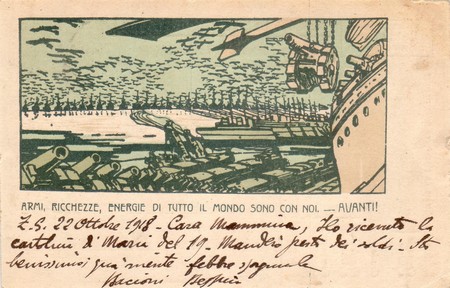 ARMI, RICCHEZZE, ENERGIE DI TUTTO IL MONDO SONO CON NOI. — AVANTI!
Z.G. 22 Ottobre 1918 - Cara Mammina, Ho ricevuto la
cartolina di Maria del 19. Manderò presto dei soldi - Sto
benissimo qua niente febbre spagnuola
Bacioni Beppin